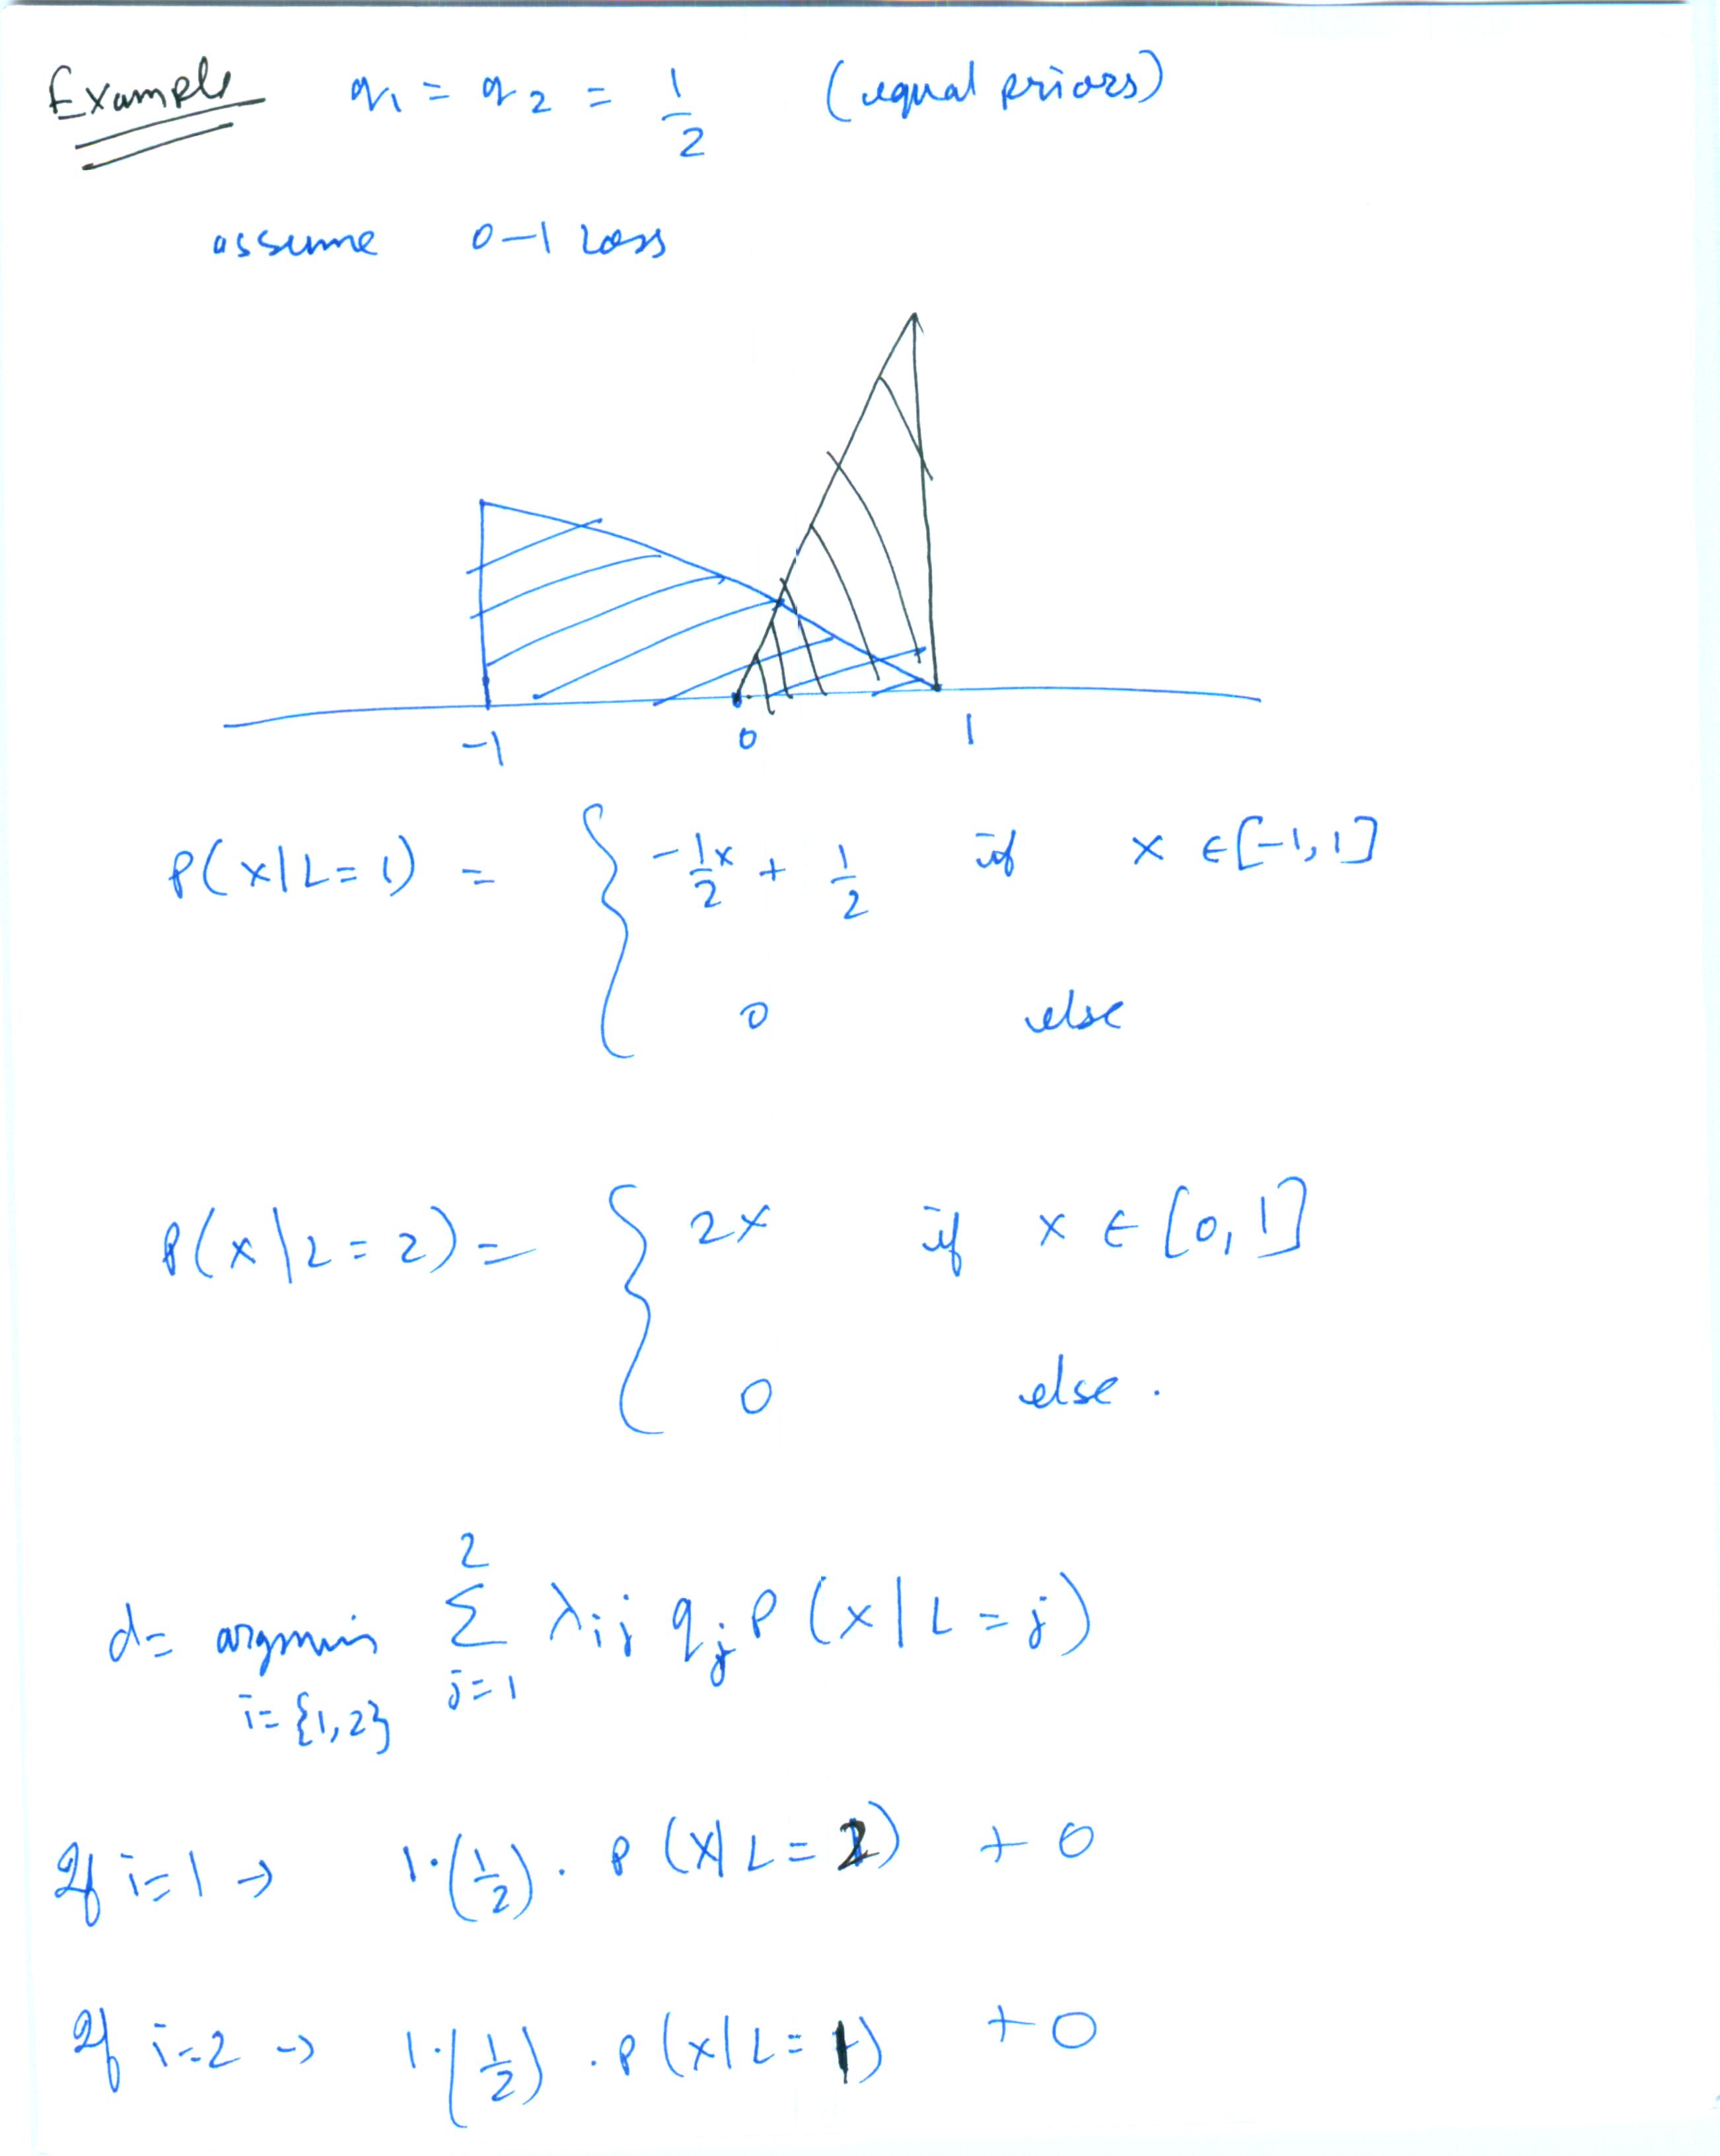 Example q₁ = q₂ = 1/2 (equal priors)
assume 0-1 loss
-1 0 1
P(x|L=1) = { -1/2 x + 1/2 if x ∈ [-1,1]
0 else
P(x|L=2) = { 2x if x ∈ [0,1]
0 else.
d = argmin i={1,2} Σ j=1 2 λij qj P(x|L=j)
If i=1 → 1·(1/2)·P(x|L=2) + 0
If i=2 → 1·(1/2)·P(x|L=1) + 0